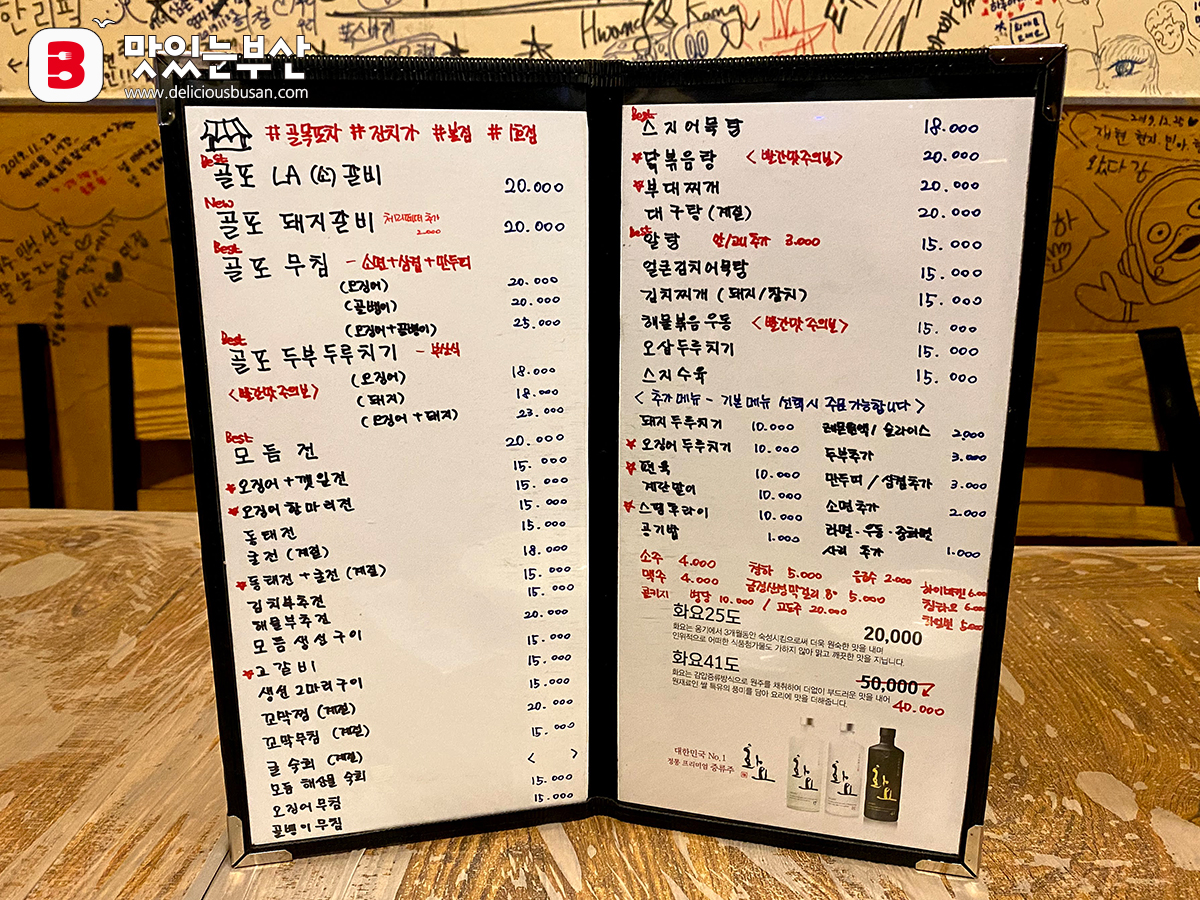 맛있는부산
www.deliciousbusan.com
Hwang & Kang
2019.11.22
2019.12.25
#골목포차 #전치가 #본점 #1호점
Best
골포 LA (소)갈비 20.000
New
골포 돼지갈비 20.000
2.000
Best
골포 무침 - 소면+삼겹+만두피
(오징어) 20.000
(골뱅이) 20.000
(오징어+골뱅이) 25.000
Best
골포 두부두루치기
<빨간맛주의보> (오징어) 18.000
(돼지) 18.000
(오징어+돼지) 23.000
Best
모듬전 20.000
오징어+깻잎전 15.000
오징어한마리전 15.000
동태전 15.000
굴전 (계절) 15.000
동태전+굴전 (계절) 18.000
김치부추전 15.000
해물부추전 15.000
모듬생선구이 20.000
고갈비 15.000
생선2마리구이 15.000
꼬막찜 (계절) 15.000
꼬막무침 (계절) 20.000
굴숙회 (계절) 15.000
모듬 해산물 숙회 < >
오징어무침 15.000
골뱅이무침 15.000
Best
스지어묵탕 18.000
닭볶음탕 <빨간맛주의보> 20.000
부대찌개 20.000
대구탕 (계절) 20.000
Best
알탕 안/고니추가 3.000 15.000
얼큰김치어묵탕 15.000
김치찌개 (돼지/참치) 15.000
해물볶음우동 <빨간맛주의보> 15.000
오삼두루치기 15.000
스지수육 15.000
<추가메뉴 - 기본메뉴 선택시 주문가능합니다>
돼지두루치기 10.000
오징어두루치기 10.000
편육 10.000
계란말이 10.000
스팸후라이 10.000
공기밥 1.000
레몬원액/슬라이스 2.000
두부추가 3.000
만두피/삼겹추가 3.000
소면추가 2.000
라면·우동·중화면
사리 추가 1.000
소주 4.000 청하 5.000 음료수 2.000 하이네켄 6.000
맥주 4.000 금정산성막걸리 8° 5.000 칭타오 6.000
콜키지 병당 10.000 / 고도주 20.000 5.000
화요25도 20,000
화요는 옹기에서 3개월동안 숙성시킴으로써 더욱 원숙한 맛을 내며
인위적으로 어떠한 식품첨가물도 가하지 않아 맑고 깨끗한 맛을 지닙니다.
화요41도 50,000
화요는 감압증류방식으로 원주를 채취하여 더없이 부드러운 맛을 내어
원재료인 쌀 특유의 풍미를 담아 요리에 맛을 더해줍니다. 40.000
대한민국 No.1
정통 프리미엄 증류주
화요